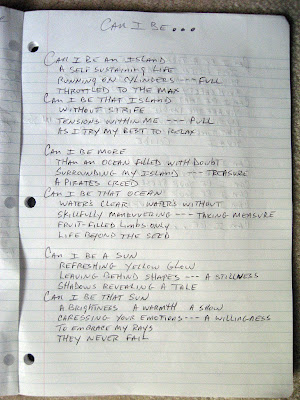 CAN I BE...
CAN I BE AN ISLAND
A SELF SUSTAINING LIFE
RUNNING ON CYLINDERS --- FULL
THROTTLED TO THE MAX
CAN I BE THAT ISLAND
WITHOUT STRIFE
TENSIONS WITHIN ME --- PULL
AS I TRY MY BEST TO RELAX
CAN I BE MORE
THAN AN OCEAN FILLED WITH DOUBT
SURROUNDING MY ISLAND --- TREASURE
A PIRATES CREED
CAN I BE THAT OCEAN
WATERS CLEAR WATERS WITHOUT
SKILLFULLY MANEUVERING --- TAKING MEASURE
FRUIT-FILLED LIMBS ONLY
LIFE BEYOND THE SEED
CAN I BE A SUN
REFRESHING YELLOW GLOW
LEAVING BEHIND SHAPES --- A STILLNESS
SHADOWS REVEALING A TALE
CAN I BE THAT SUN
A BRIGHTNESS A WARMTH A SHOW
CARESSING YOUR EMOTIONS --- A WILLINGNESS
TO EMBRACE MY RAYS
THEY NEVER FAIL